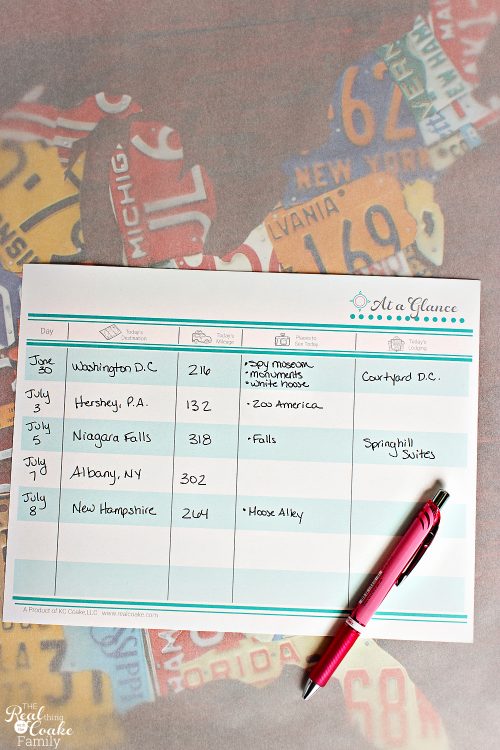 MICHIG
JL6
NEW YORK
NEW HAM
LVANIA
169
At a Glance
Day
Today's Destination
Today's Mileage
Places to See Today
Today's Lodging
June 30
Washington D.C
216
• Spy museum
• monuments
• white house
Courtyard D.C.
July 3
Hershey, P.A.
132
• Zoo America
July 5
Niagara Falls
318
• Falls
Springhill Suites
July 7
Albany, NY
302
July 8
New Hampshire
264
• Moose Alley
A Product of KC Coake, LLC www.realcoake.com
ORIDA
THE
Real thing
with the
Coake
Family